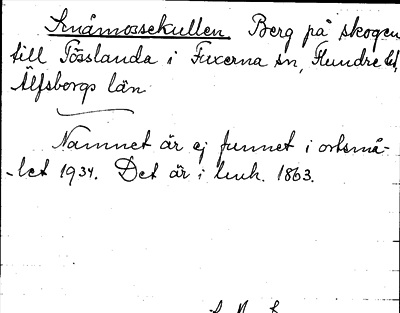 Småmossekullen Berg på skogen
till Tösslanda i Fuxerna sn, Flundre hd,
Älfsborgs län
Namnet är ej funnet i ortsmå-
-let 1934. Det är i bruk. 1863.